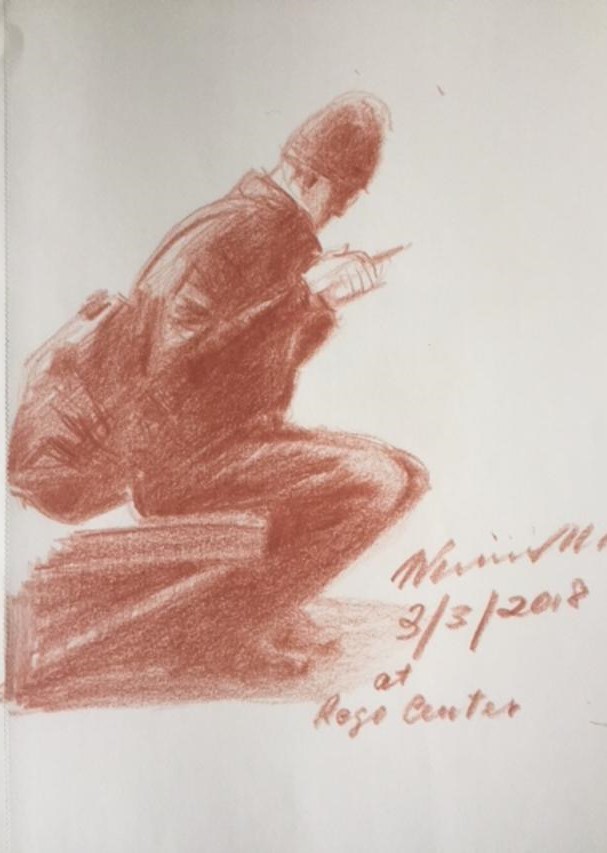 3/3/2018
at
Rego Center